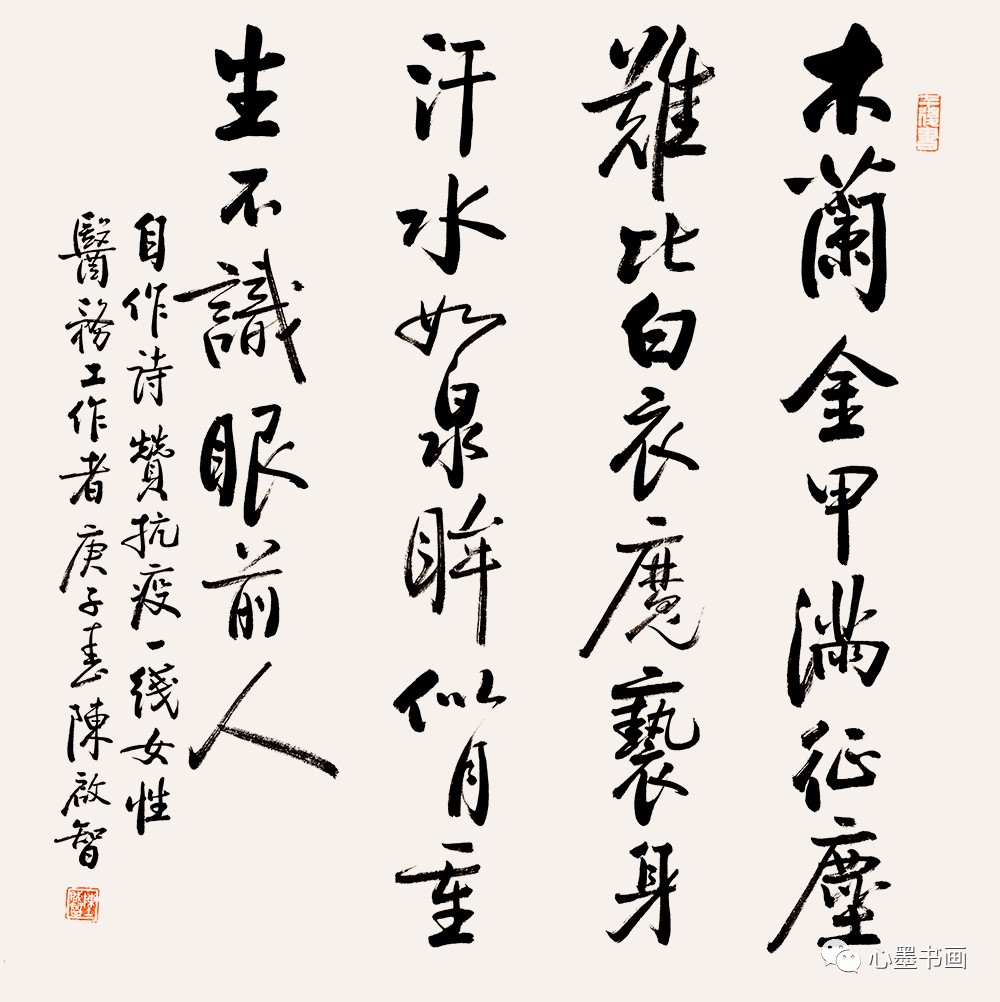 木蘭金甲滿征塵
難比白衣魔褻身
汗水如泉眸似月重
生不識眼前人
自作詩贊抗疫一綫女性
醫務工作者庚子春陳啟智
心墨书画